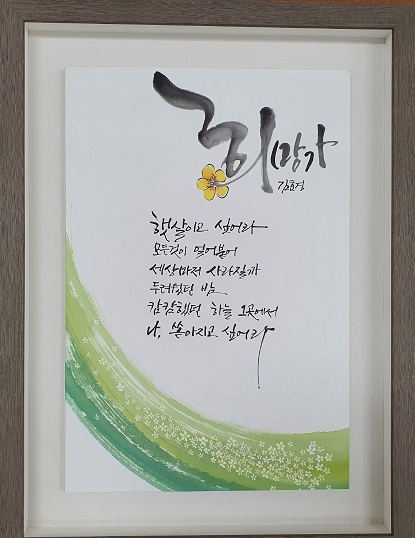 희망가
김효경
햇살이고 싶어라
모든것이 얼어붙어
세상마저 사라질까
두려웠던 밤
캄캄했던 하늘 그곳에서
나, 쏟아지고 싶어라